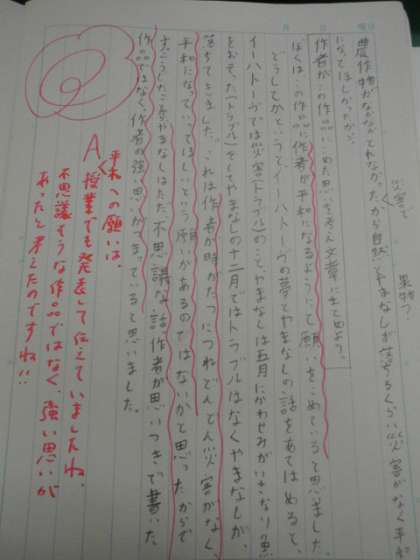 災害で
果物?
農作物が
とれなかったから自然とやまなしが落ちるくらい災害がなく平和
になってほしかったから。
作者がこの作品にこめた思いを考え文章にまとめよう。
ぼくは、この作品に作者が平和になるように願いをこめていると思いました
どうしてかというと、イーハトーヴの夢とやまなしの話をあてはめると、
イーハトーヴでは災害(トラブル)のことやまなしは五月にかわせみがいきなり魚
をおそった(トラブル)そしてやまなしの十二月ではトラブルはなくやまなしが、
落ちてきました。これは作者が時がたつにつれどんどん災害がなく、
平和になっていってほしいという願いがあるのではないかと思ったからで
す。こうしたことからやまなしはただ不思議な話、作者が思いつきで書いた、
作品ではなく、作者の強い思いがつまっていると思いました。
平和への願いは、
A
授業でも発表して伝えていましたね。
不思議そうな作品ではなく、強い思いが
あったと考えたのですね!!